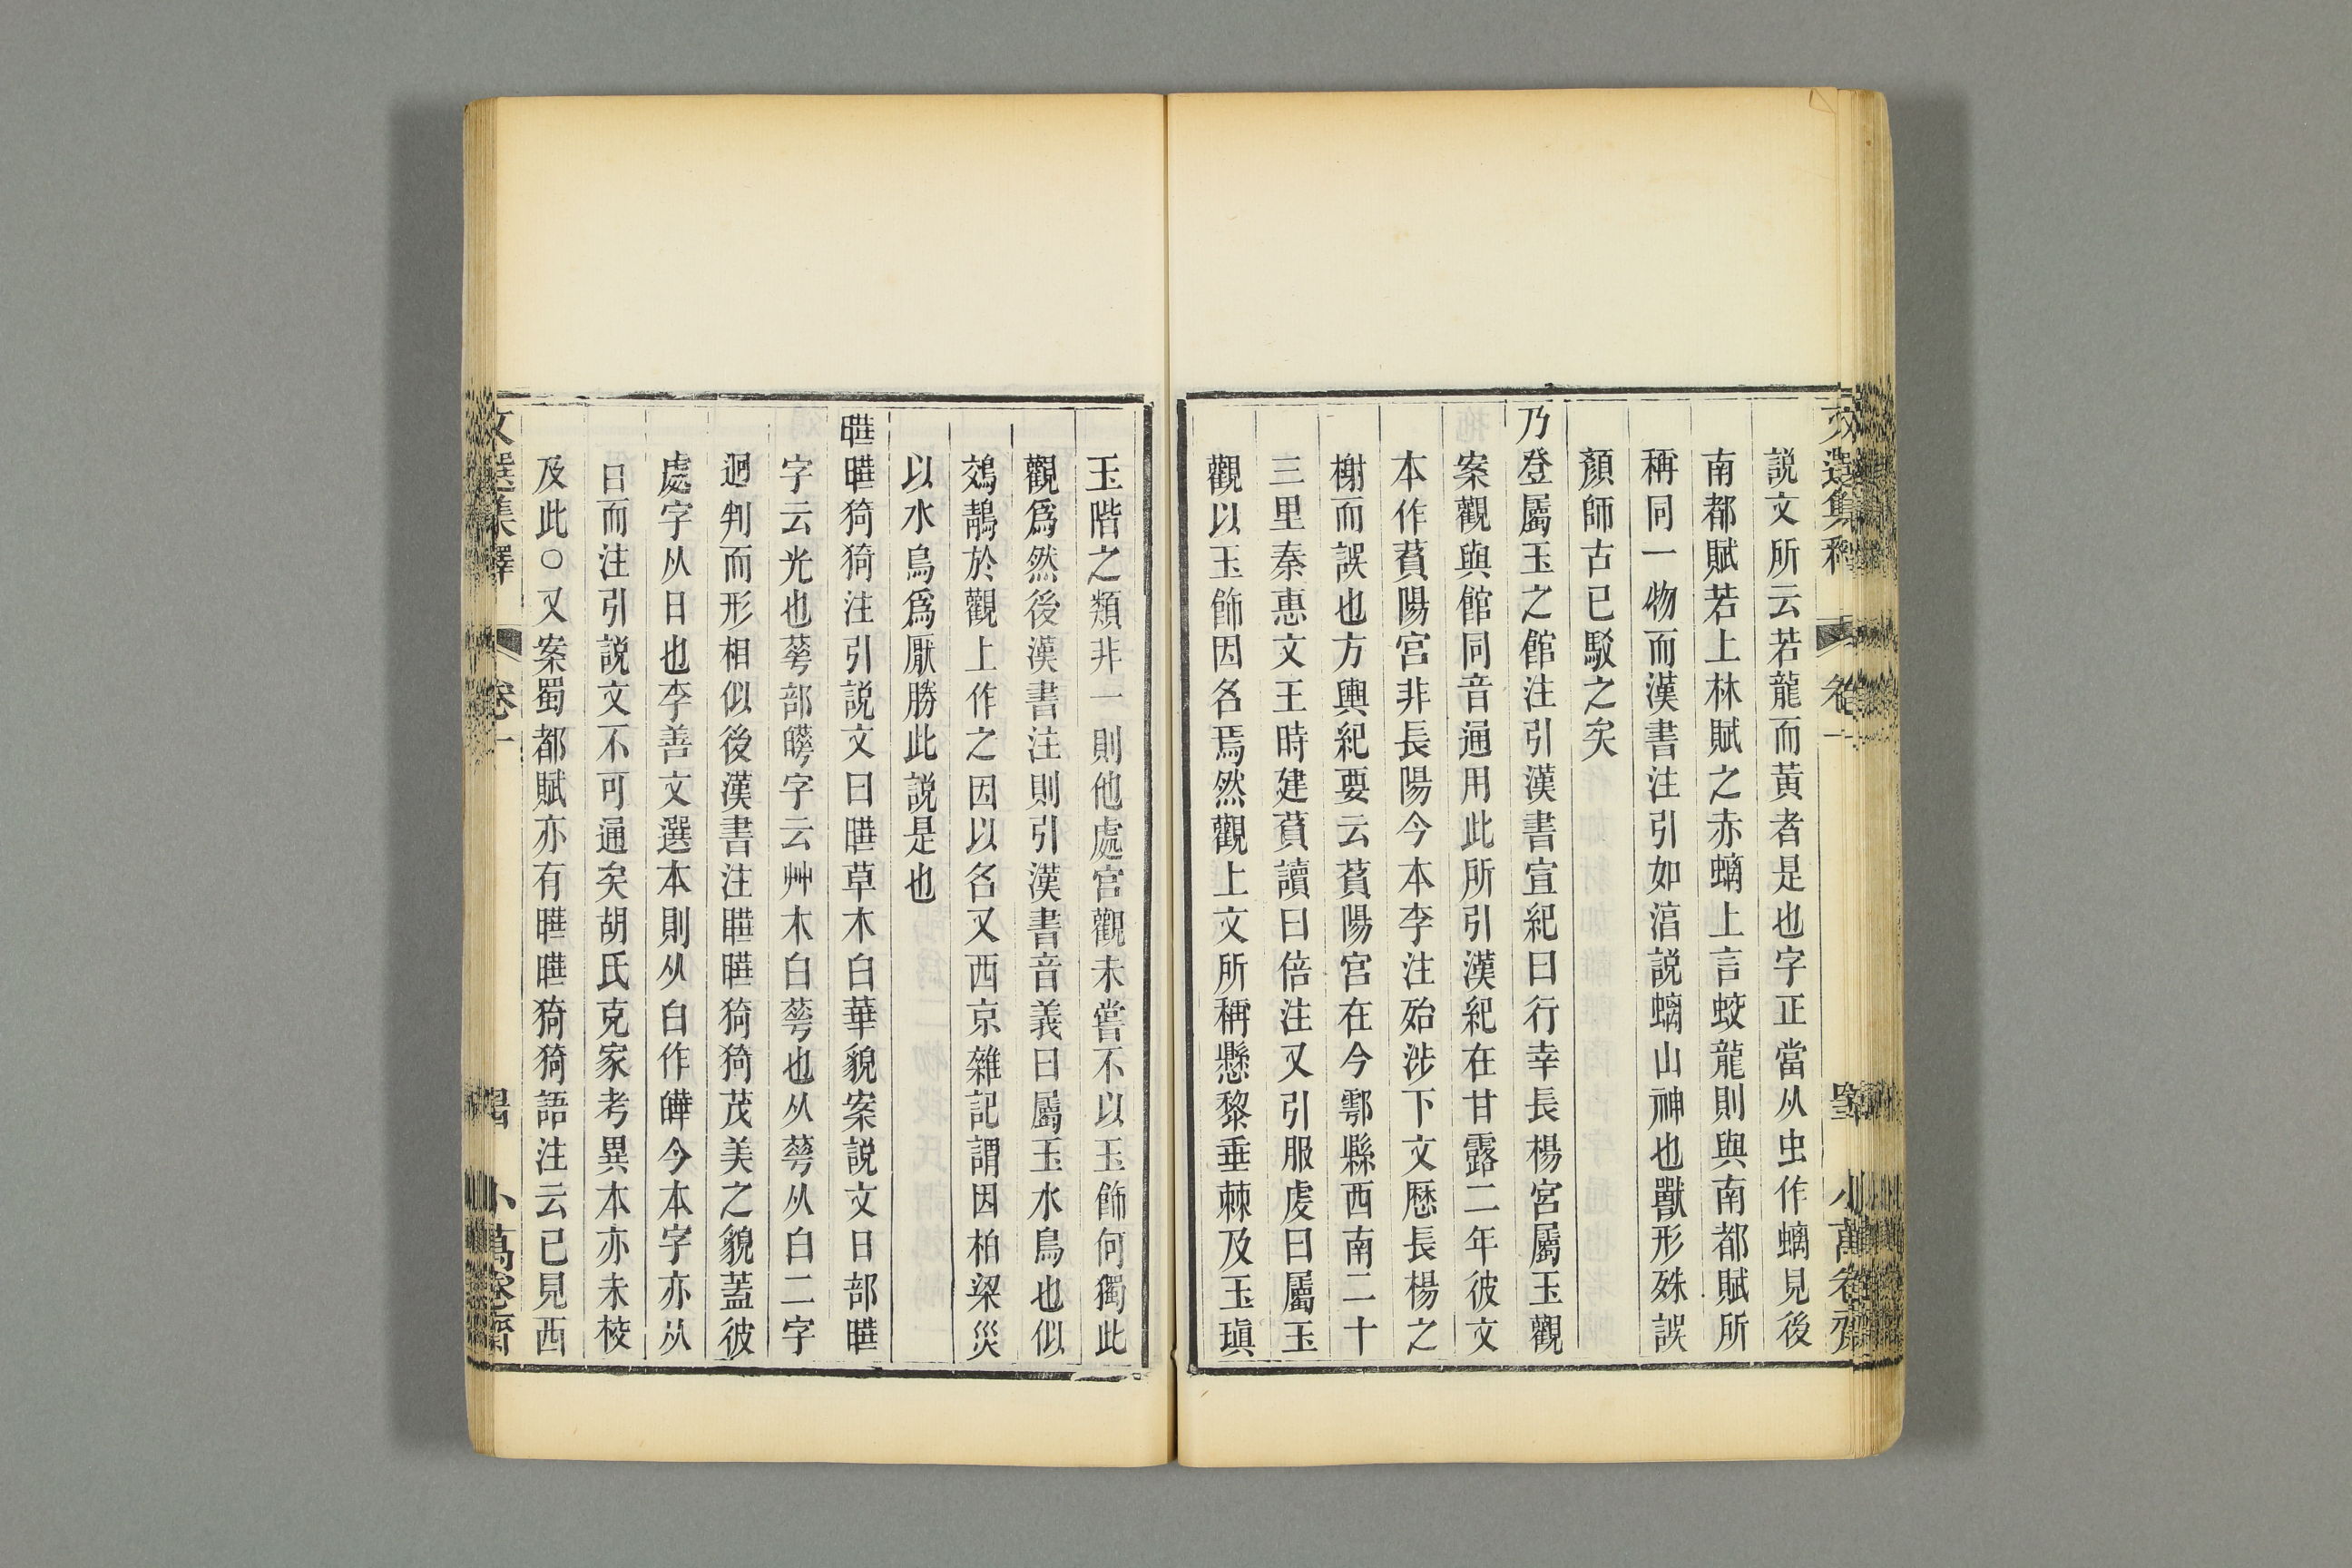 説文所云若龍而黃者是也字正當从虫作螭見後
南都賦若上林賦之赤螭上言蛟龍則與南都賦所
稱同一物而漢書注引如淳説螭山神也獸形殊誤
顏師古已駁之矣
乃登屬玉之館注引漢書宣紀曰行幸長楊宮屬玉觀
案觀與館同音通用此所引漢紀在甘露二年彼文
本作萯陽宮非長陽今本李注殆涉下文歴長楊之
榭而誤也方輿紀要云萯陽宮在今鄠縣西南二十
三里秦惠文王時建萯讀曰倍注又引服虔曰屬玉
觀以玉飾因名焉然觀上文所稱懸黎垂棘及玉瑱
玉階之類非一則他處宮觀未嘗不以玉飾何獨此
觀爲然後漢書注則引漢書音義曰屬玉水鳥也似
鵁鶄於觀上作之因以名又西京雜記謂因柏梁災
以水鳥爲厭勝此説是也
曄曄猗猗注引説文曰曄草木白華貌案説文日部曄
字云光也䔢部皣字云艸木白䔢也从䔢从白二字
迥判而形相似後漢書注曄曄猗猗茂美之貌蓋彼
處字从日也李善文選本則从白作皣今本字亦从
日而注引説文不可通矣胡氏克家考異本亦未校
及此○又案蜀都賦亦有曄曄猗猗語注云已見西
文選集釋
卷一